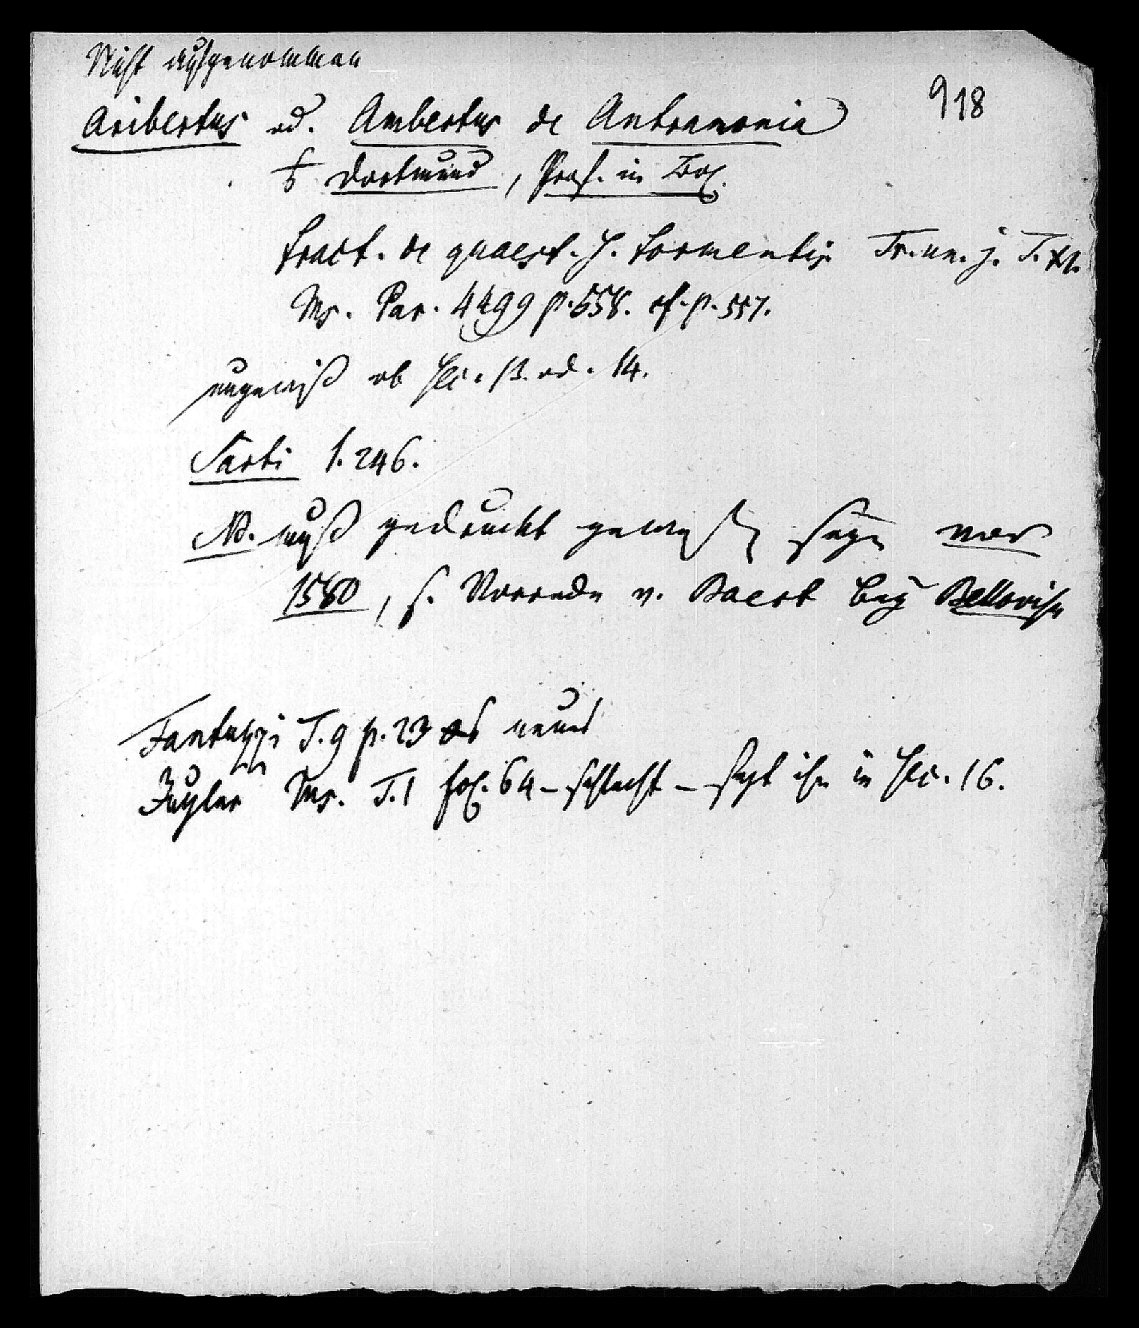 Nicht aufgenommen
918
Aribertus od. Ambertus de Antramonia
Dortmund, Prof. in Bol.
tract. de quaest. s. tormentis Tr. un. j. T. XI.
Ms. Par. 4499 p. 558. cf. p. 557.
ungewiß ob sec. 13. od. 14.
Sarti 1. 246.
NB. muß gedruckt gewesen seyn vor
1580, s. Vorrede v. Baert bey Bellovisu
Fantuzzi T. 9 p. 23 als neues
Jugler Ms. T. 1 fol. 64 – schlecht – sezt ihn in sec. 16.